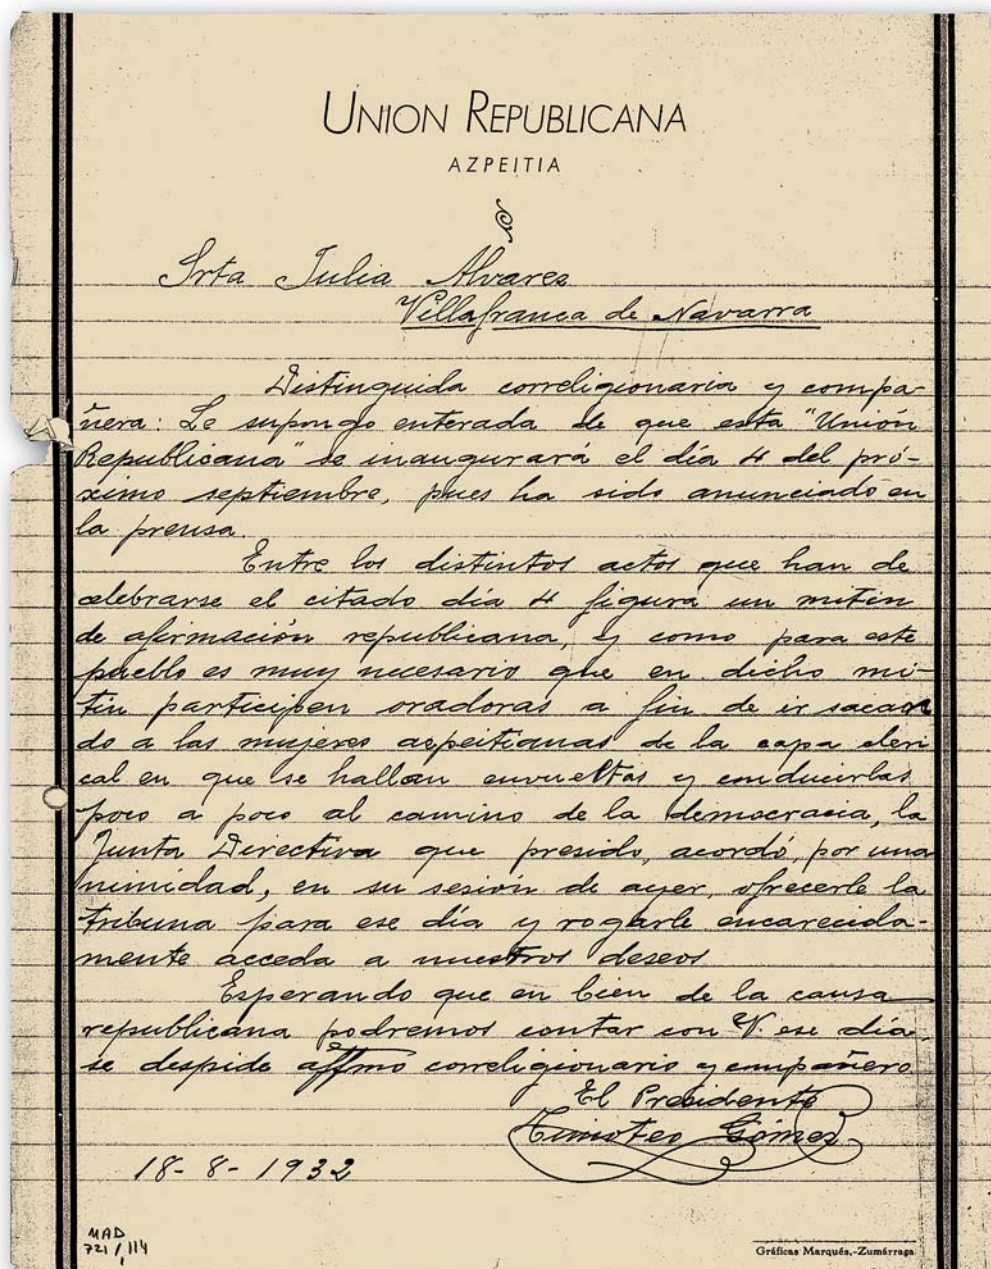 UNION REPUBLICANA
AZPEITIA
Srta Julia Alvarez
Villafranca de Navarra
Distinguida correligionaria y compa-
ñera: Le supongo enterada de que esta "Unión
Republicana" se inaugurará el día 4 del pró-
ximo septiembre, pues ha sido anunciado en
la prensa.
Entre los distintos actos que han de
celebrarse el citado día 4 figura un mitin
de afirmación republicana, y como para este
pueblo es muy necesario que en dicho mi-
tin participen oradoras a fin de ir sacan
do a las mujeres azpeitianas de la capa cleri
cal en que se hallan envueltas y conducirlas
poco a poco al camino de la democracia, la
Junta Directiva que presido, acordó, por una
nimidad, en su sesión de ayer, ofrecerle la
tribuna para ese día y rogarle encarecida-
mente acceda a nuestros deseos
Esperando que en bien de la causa
republicana podremos contar con V. ese día
se despide affmo correligionario y compañero
El Presidente
Timoteo Gómez
18-8-1932
MAD
721/114
Gráficas Marqués.-Zumárraga